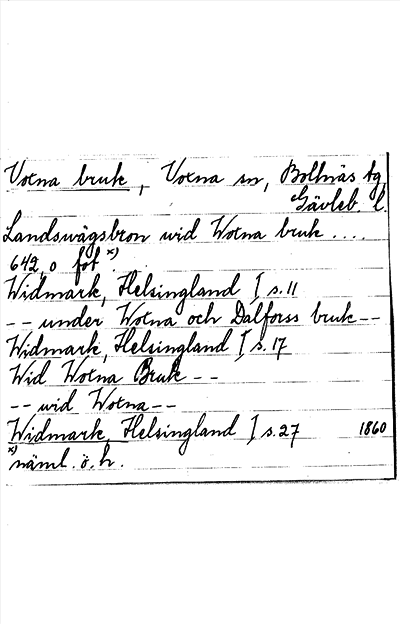 Voxna bruk, Voxna sn, Bollnäs tg
Gävleb. l.
Landsvägsbron wid Woxna bruk ....
642,0 fot x)
Widmark, Helsingland I s. 11
-- under Woxna och Dalforss bruk --
Widmark, Helsingland I s. 17
Wid Woxna Bruk --
-- wid Woxna --
Widmark, Helsingland I s. 27 1860
x) näml. ö. h.